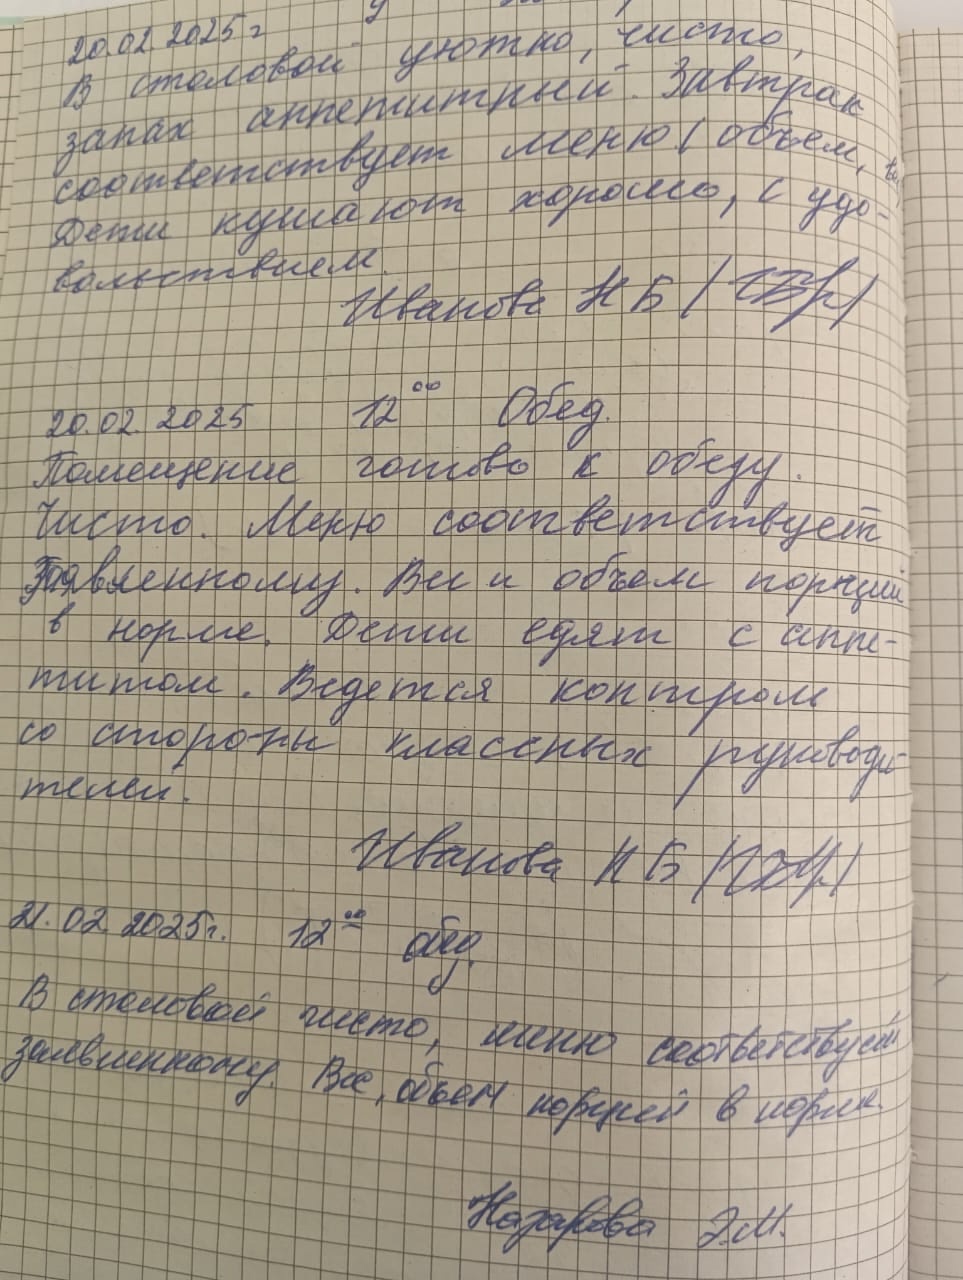 20.02 2025 г
В столовой уютно, чисто,
запах аппетитный. Завтрак
соответствует меню (объем,
Дети кушают хорошо, с удо-
вольствием.
Иванова Н Б /
20.02. 2025 12 00 Обед.
Помещение готово к обеду.
Чисто. Меню соответствует
заявленному. Вес и объем порций
в норме. Дети едят с аппе-
титом. Ведется контроль
со стороны классных руководи-
телей.
Иванова Н Б /
21.02 2025г. 12 00 обед.
В столовой чисто, меню соответствует
заявленному. Вес, объем порций в норме.
Назарова Э.М.